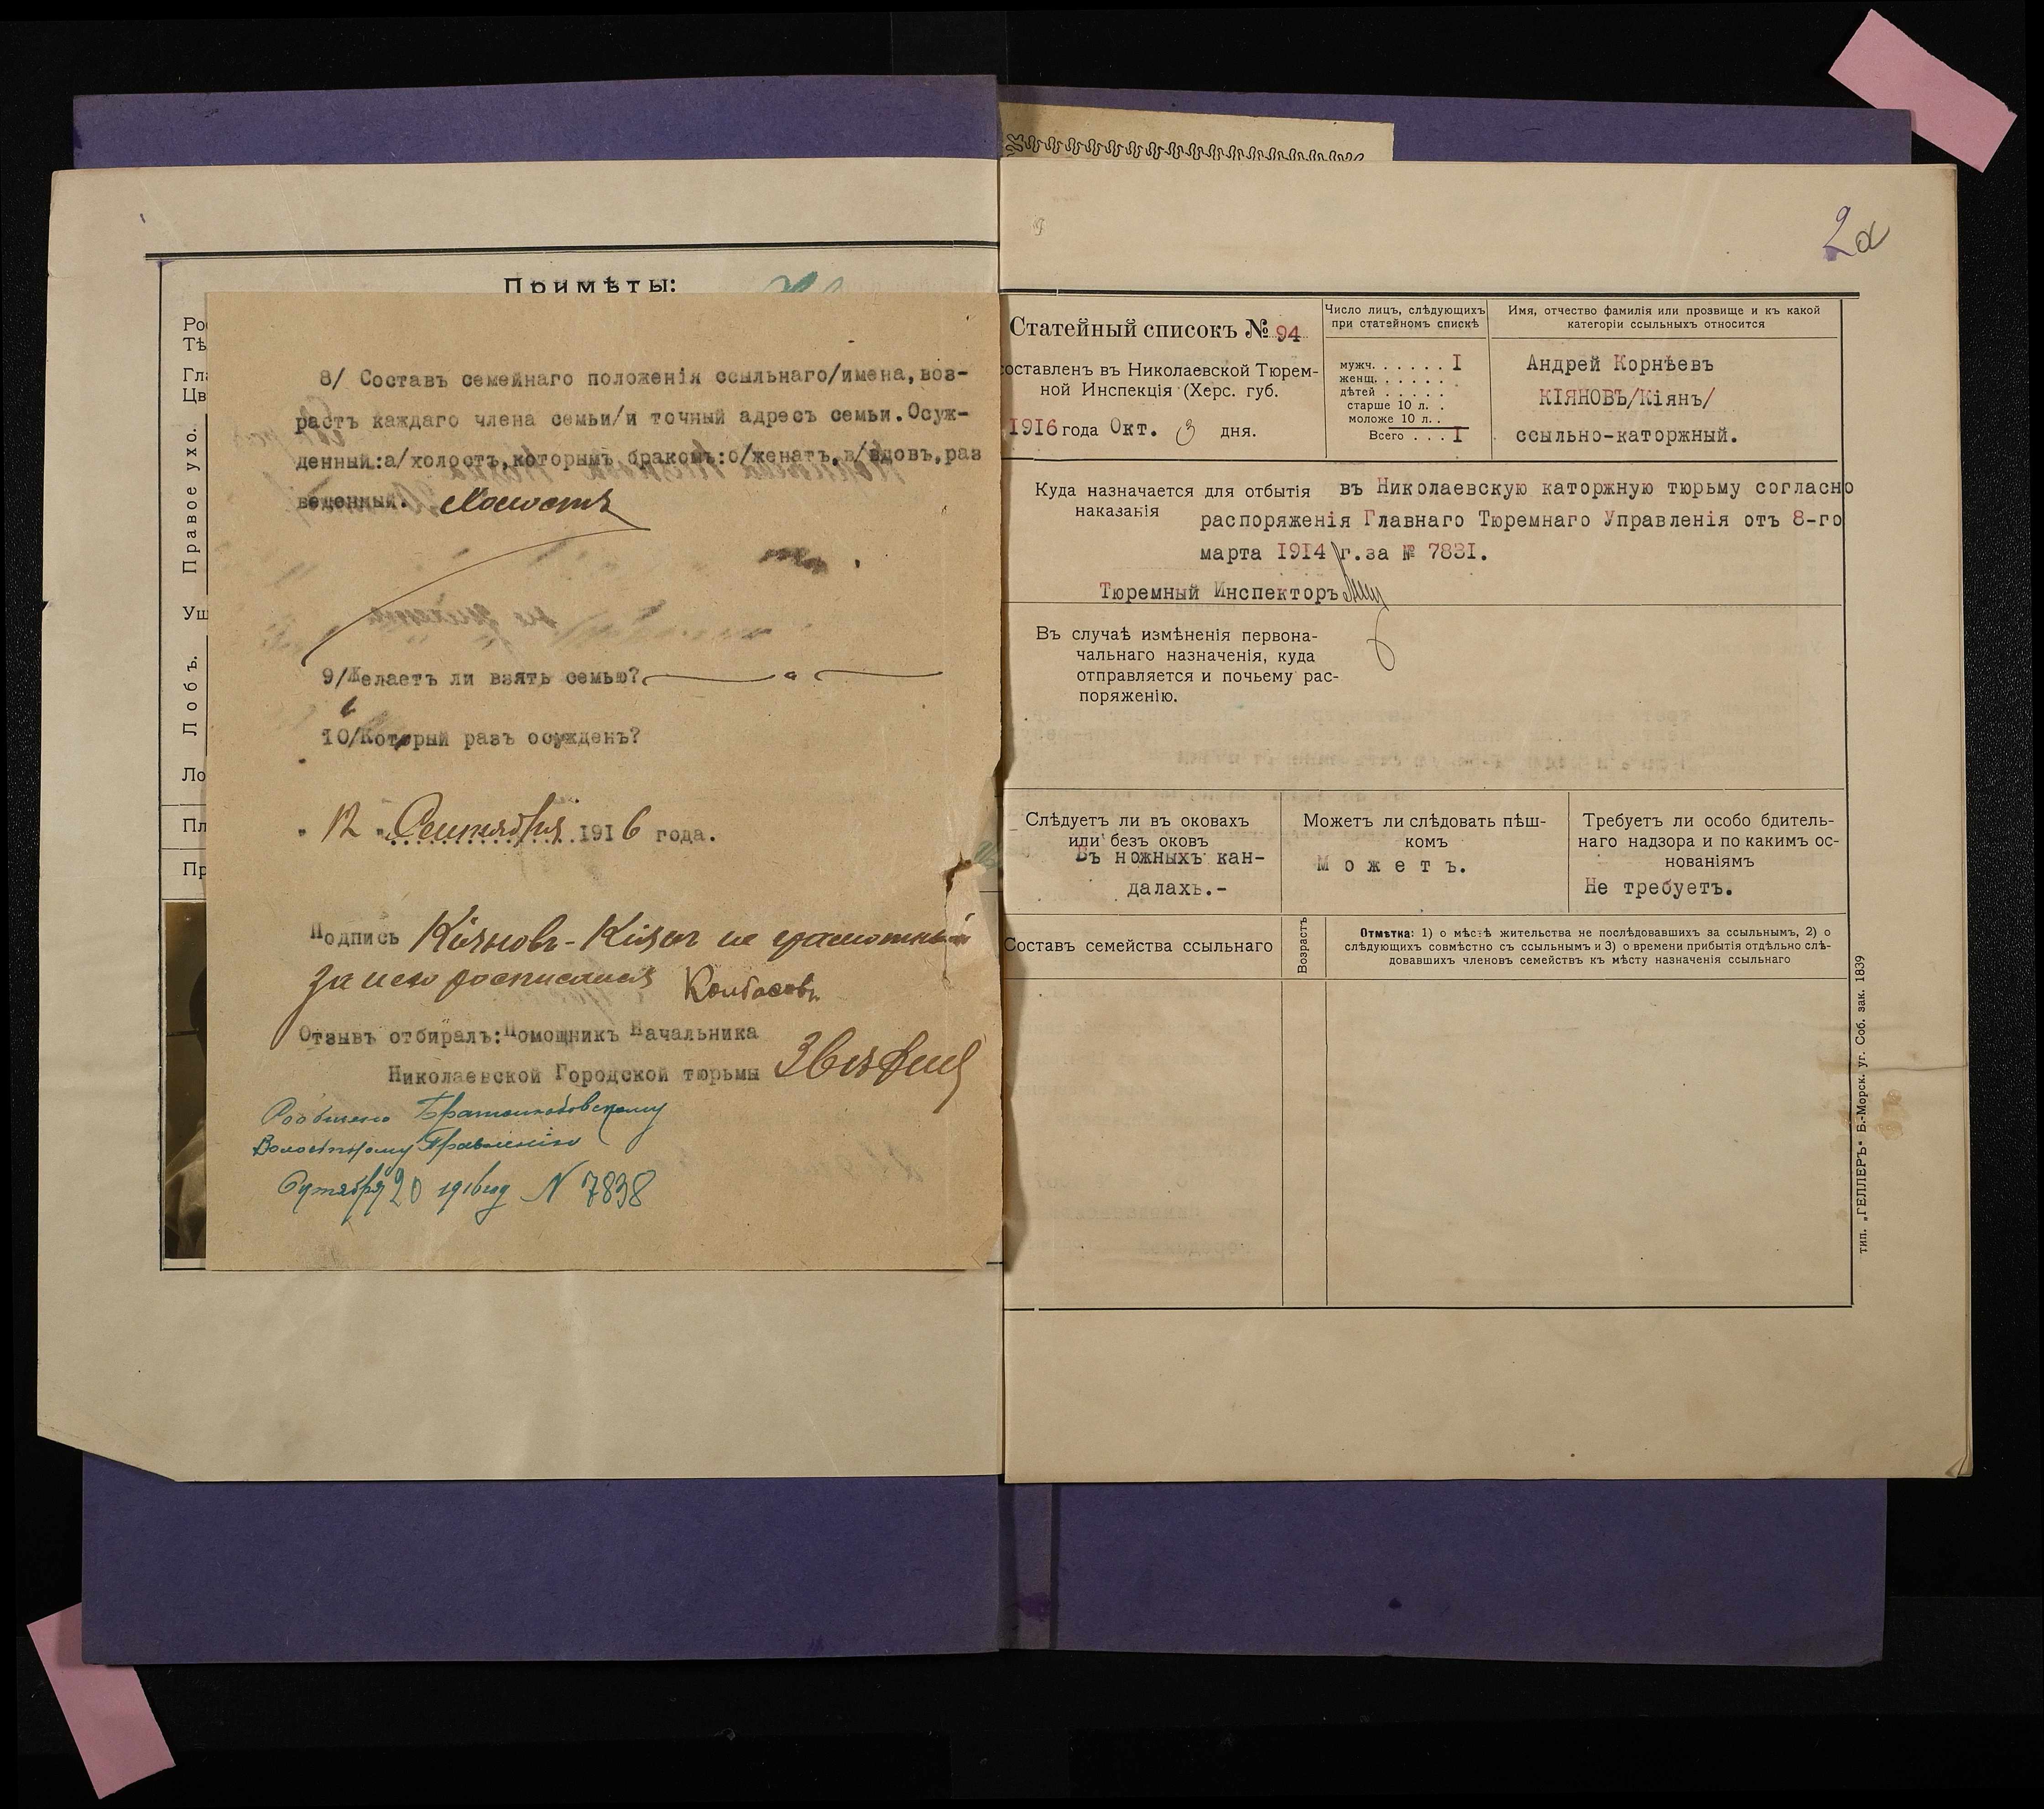 Примѣты:
Ро
Тѣ
Гл
Цв
Правое ухо.
Уш
Лобъ.
Ло
Пл
Пр
8/ Составъ семейнаго положенія ссыльнаго/имена,воз-
растъ каждаго члена семьи/и точный адресъ семьи.Осуж-
денный:а/холостъ,которымъ бракомъ:о/женатъ,в/вдовъ,раз
веденный. Холостъ
9/Желаетъ ли взять семью?
10/Который разъ осужденъ?
" 12 " Сентября 1916 года.
Подпись Кіяновъ-Кіянъ не грамотный
за него росписался Колбасовъ
Отзывъ отбиралъ:Помощникъ Начальника
Николаевской Городской тюрьмы
Сообщено
Волостному Правленію
20 1916 году N 7838
2а
Статейный списокъ № 94
составленъ въ Николаевской Тюрем-
ной Инспекція (Херс. губ.
1916 года Окт. 3 дня.
Число лицъ, слѣдующихъ
при статейномъ спискѣ
мужч. . . . . . . I
женщ. . . . . . .
дѣтей . . . . .
старше 10 л. .
моложе 10 л. .
Всего . . . I
Имя, отчество фамилія или прозвище и къ какой
категоріи ссыльныхъ относится
Андрей Корнѣевъ
КІЯНОВЪ/Кіянъ/
ссыльно-каторжный.
Куда назначается для отбытія наказанія
въ Николаевскую каторжную тюрьму согласно
распоряженія Главнаго Тюремнаго Управленія отъ 8-го
марта 1914 г.за № 7831.
Тюремный Инспекторъ
Въ случаѣ измѣненія первона-
чальнаго назначенія, куда
отправляется и почьему рас-
поряженію.
Слѣдуетъ ли въ оковахъ
или безъ оковъ
Въ ножныхъ кан-
далахъ.-
Можетъ ли слѣдовать пѣш-
комъ
Можетъ.
Требуетъ ли особо бдитель-
наго надзора и по какимъ ос-
нованіямъ
Не требуетъ.
Составъ семейства ссыльнаго
Возрастъ
Отмѣтка: 1) о мѣстѣ жительства не послѣдовавшихъ за ссыльнымъ, 2) о
слѣдующихъ совмѣстно съ ссыльнымъ и 3) о времени прибытія отдѣльно слѣ-
довавшихъ членовъ семействъ къ мѣсту назначенія ссыльнаго
тип. „ГЕЛЛЕРЪ" Б.-Морск. уг. Соб. зак. 1839